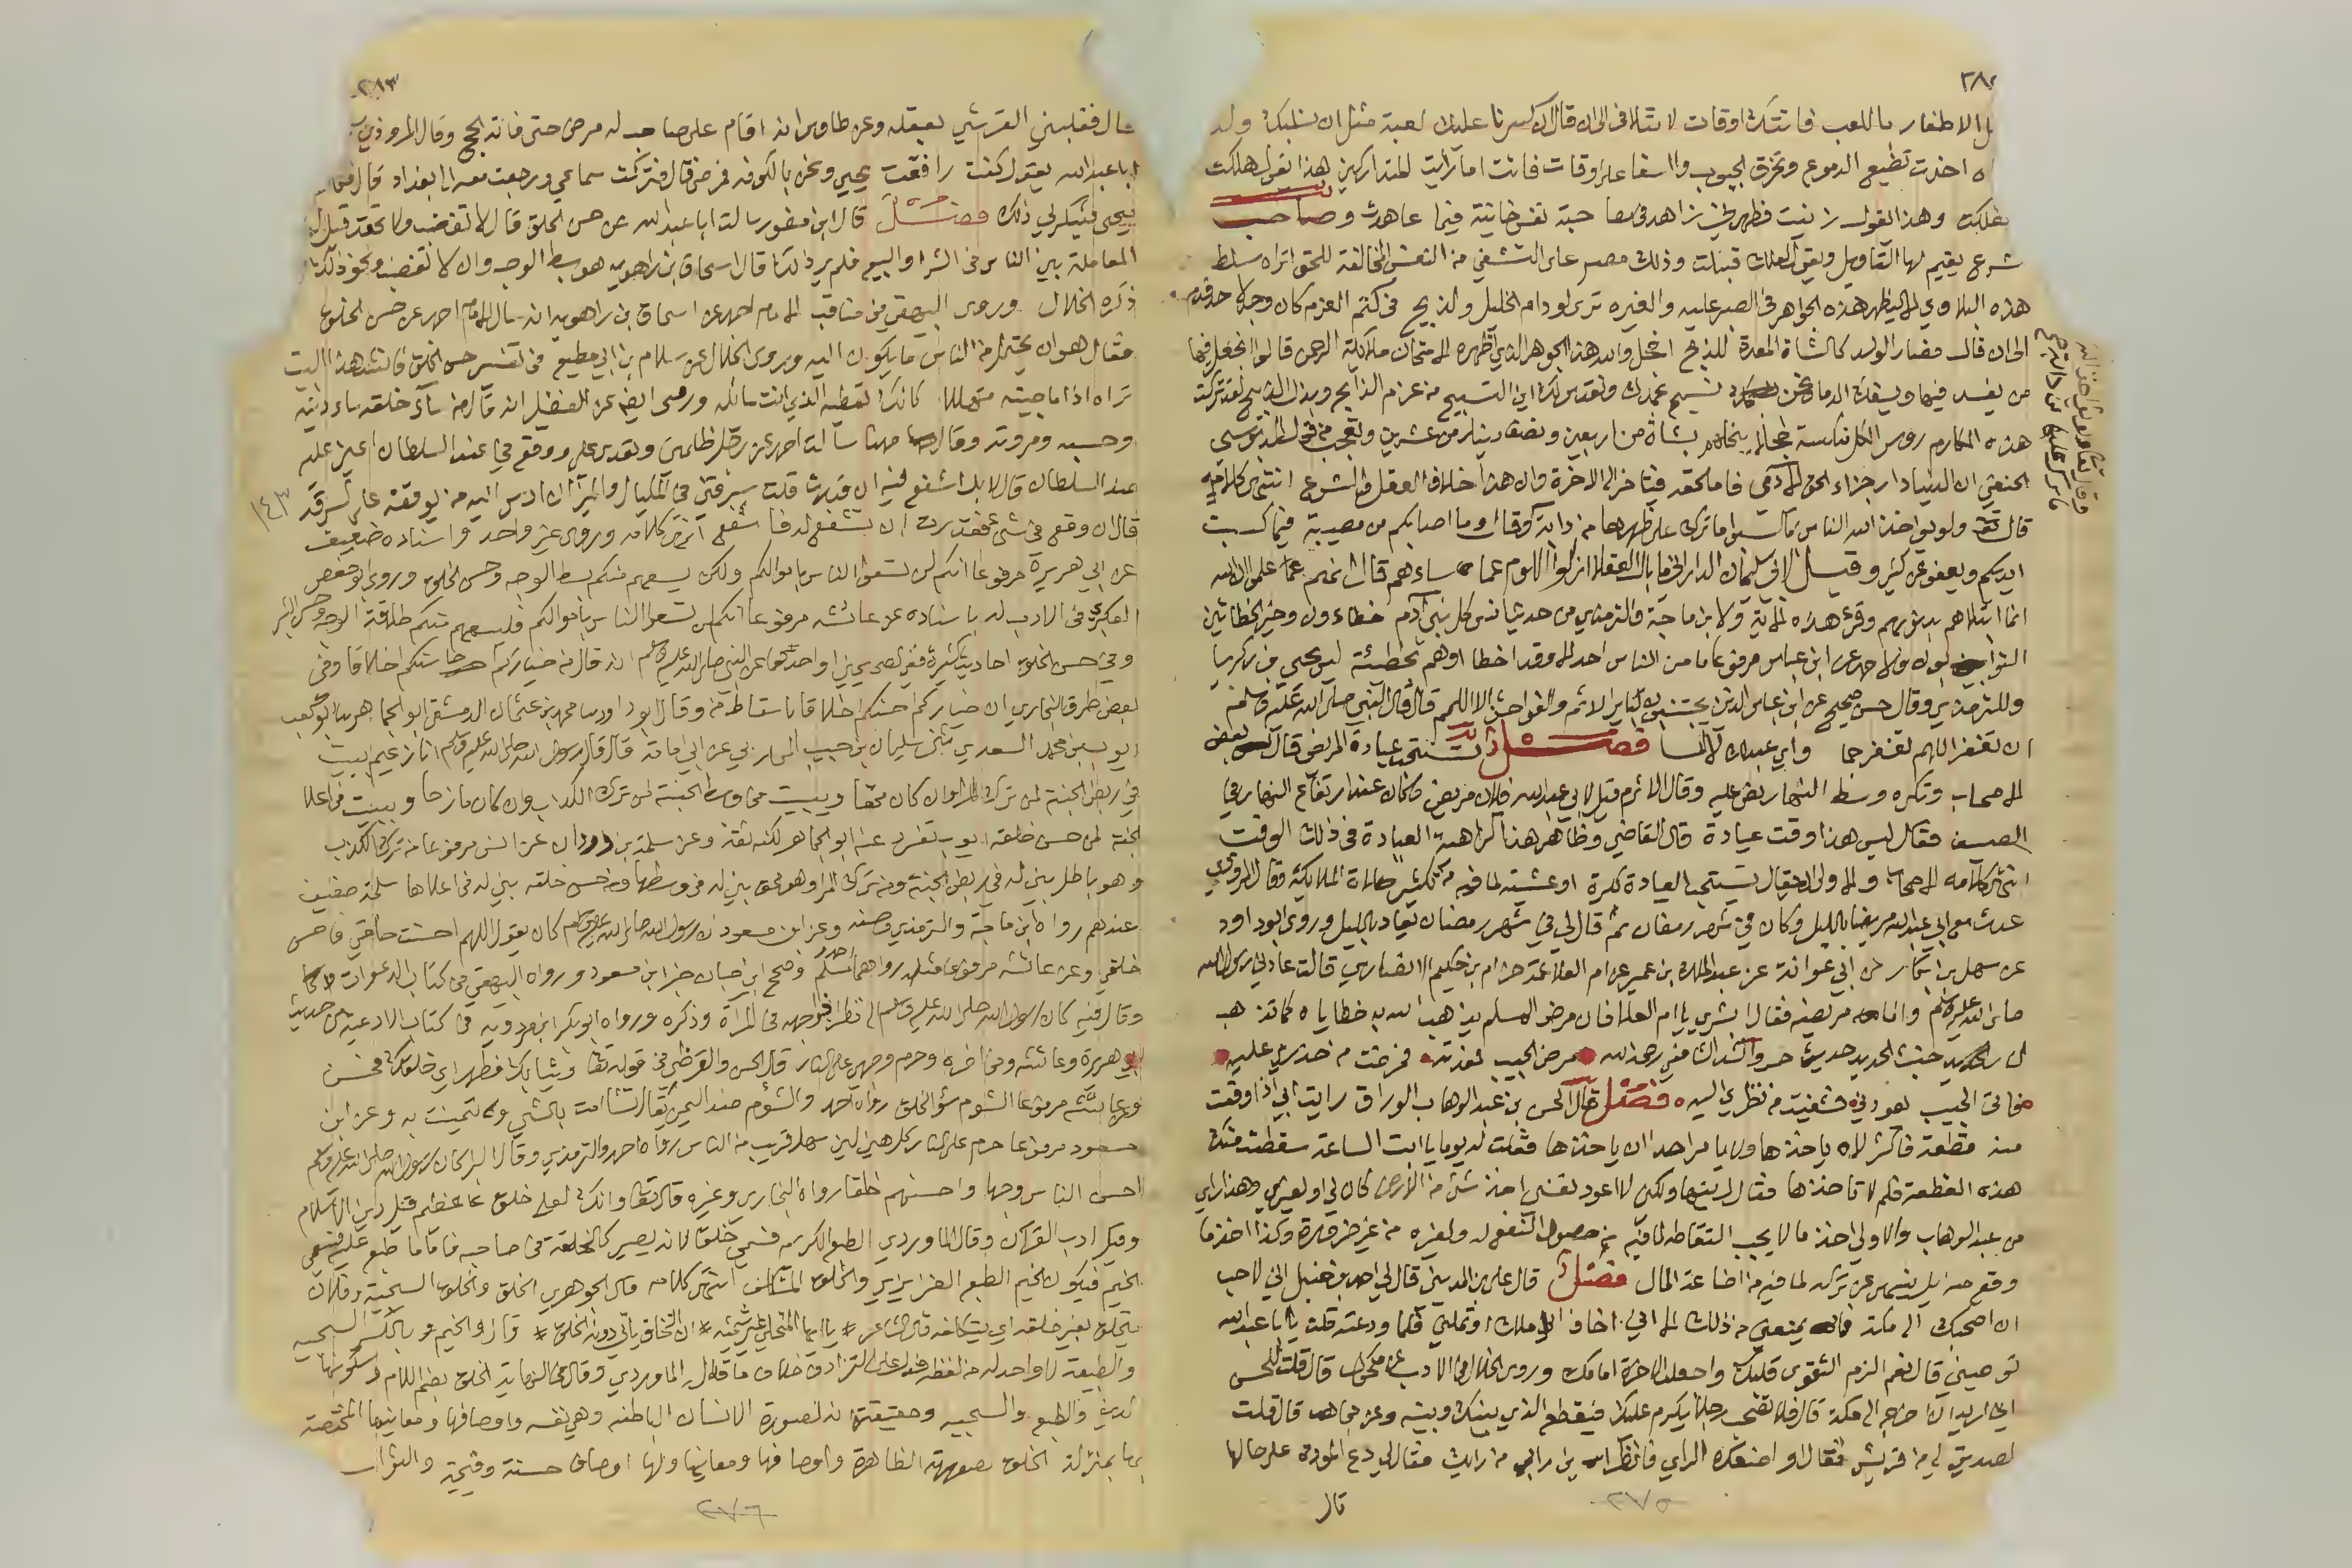 ٢٨٢
الاظفار باللعب فاتتك اوقات لا تتلافى الى ان قال ان كسرنا عليك لعبة مثل ان نسلبك ولد
اخذت تضيع الدموع وتخرق الجيوب واسفا على اوقات فاتت اما رايت المتداركين هذا يقول هلكت
وهذا يقول زنيت فطهرني
شرع يقيم لها التاويل وذلك مصر على التشفي من النفس المخالفة للحق اتراه سلط
هذه البلاوي الا ليظهر هذه الجواهر في الصبر عليه والغيرة ترى لو دام الخليل والذبيح في كتم العزم كان وجد لاحد
الى ان قال فصار الولد كالشاة المعدة للذبح اخجل والله هذا الجوهر الذي اظهره الامتحان ملائكة الرحمن قالوا اتجعل فيها
من يفسد فيها ويسفك الدماء ونحن نسبح بحمدك ونقدس لك اين التسبيح من عزم الذابح
هذه المكارم روس الكل ناكسة بشاة من اربعين ونصف دينار من عشرين
الحنفي ان الدنيا دار جزاء الحق الآدمي فاما لحقه فيتاخر الى الاخرة وان هذا خلاف العقل والشرع انتهى كلامه
قال تعالى ولو يؤاخذ الله الناس بما كسبوا ما ترك على ظهرها من دابة وقال وما اصابكم من مصيبة فبما كسبت
ايديكم ويعفو عن كثير وقيل لابي سليمان الداراني ما بال العقلاء ازالوا اللوم عمن اساءهم قال انهم علموا ان الله
انما ابتلاهم بذنوبهم وقرء هذه الاية ولابن ماجة والترمذي من حديث انس كل بني آدم خطاءون وخير الخطائين
التوابون ولاحمد عن ابن عباس مرفوعا ما من الناس احد الا وقد اخطا او هم بخطيئة ليس يحيى بن زكريا
وللترمذي وقال حسن صحيح عن ابن عباس الذين يجتنبون كبائر الاثم والفواحش الا اللمم قال قال النبي صلى الله عليه وسلم
ان تغفر اللهم تغفر جما واي عبد لك لا الما فصل تستحب عيادة المريض قال بعض
الاصحاب وتكره وسط النهار نص عليه وقال الاثرم قيل لابي عبد الله فلان مريض وكان عند ارتفاع النهار في
الصيف فقال ليس هذا وقت عيادة قال القاضي وظاهر هذا كراهية العيادة في ذلك الوقت
انتهى كلامه والاولى ان يقال تستحب العيادة بكرة او عشية لما فيه من تكثير صلاة الملائكة وقال المروذي
عدت مع ابي عبد الله مريضا بالليل وكان في شهر رمضان ثم قال لي في شهر رمضان يعاد بالليل وروى ابو داود
عن سهل بن بكار عن ابي عوانة عن عبد الملك بن عمير عن ام العلا عمة حزام بن حكيم الانصاري قالت عادني رسول الله
صلى الله عليه وسلم وانا مريضة فقال ابشري يا ام العلا فان مرض المسلم يذهب الله به خطاياه كما تذهب
خبث الحديد حديث حسن وانشد الشافعي رحمه الله مرض الحبيب فعدته فمرضت من حذري عليه
فاتى الحبيب يعودني فشفيت من نظري اليه فصل قال الحسن بن عبد الوهاب الوراق رايت ابي اذا وقعت
منه قطعة فاكثر لا ياخذها ولا يامر احدا ان ياخذها فقلت له يوما يا ابت الساعة سقطت منك
هذه القطعة فلم لا تاخذها فقال قد رايتها ولكن لا اعود نفسي اخذ شي من الارض كان لي او لغيري وهذا راي
من عبد الوهاب والاولى اخذ ما لا يجب التقاطه لما فيه من حصول النفع له ولغيره من غير ضرورة وكذا اخذ ما
وقع منه لما فيه من اضاعة المال فصل قال علي بن المديني قال لي احمد بن حنبل اني لاحب
ان اصحبك الى مكة فما يمنعني من ذلك الا اني اخاف ان املك او تملني فلما ودعته قلت يا ابا عبد الله
توصيني قال نعم الزم التقوى قلبك واجعل الاخرة امامك وروى الخلال في الادب عن مكحول قال قلت للحسن
اني اريد ان اخرج الى مكة قال فلا تصحب رجلا يكرم عليك فينقطع الذي بينك وبينه وعن مجاهد قال قلت
لصديق لي من قريش
قال
٢٧٥
وقال
٢٨٣
قال فغلبني القرشي بعقله وعن طاوس انه اقام على صاحب له مرض حتى فاته الحج وقال المروذي
ابا عبد الله يقول كنت رافقت يحيى ونحن بالكوفة فمرض قال فتركت سماعي ورجعت معه الى بغداد قال
يحيى فيشكر لي ذلك فصل قال ابن منصور سالت ابا عبد الله عن حسن الخلق قال ان لا تغضب ولا تحتد قيل له
المعاملة بين الناس في الشرا والبيع فلم ير ذلك قال اسحاق بن راهويه هو بسط الوجه وان لا تغضب ونحو ذلك
ذكره الخلال وروى البيهقي في مناقب الامام احمد عن اسحاق بن راهويه انه سال الامام احمد عن حسن الخلق
فقال هو ان يحتمل من الناس ما يكون اليه وروى الخلال عن سلام بن ابي مطيع في تفسير حسن الخلق فانشد هذا البيت
تراه اذا ما جيته متهللا كانك تعطيه الذي انت سائله وروى ايضا عن الفضيل انه قال من ساء خلقه ساء دينه
وحسبه ومروته وقال مهنا سالت احمد عن رجل ظلمني وتعدى علي ووقع في شي عند السلطان اعين عليه
عند السلطان قال لا بل اشفع فيه ان قدرت قلت سرقني في المكيال والميزان ادس اليه من يوقفه على السرقة
قال ان وقع في شي فقدرت ان تشفع له فاشفع انتهى كلامه وروى غير واحد واسناده ضعيف
عن ابي هريرة مرفوعا انكم لن تسعوا الناس باموالكم ولكن يسعهم منكم بسط الوجه وحسن الخلق وروى ابو حفص
العكبري في الادب له باسناده عن عائشة مرفوعا انكم لن تسعوا الناس باموالكم فليسعهم منكم طلاقة الوجه وحسن البشر
وفي حسن الخلق احاديث كثيرة ففي الصحيحين او احدهما عن النبي صلى الله عليه وسلم انه قال من خياركم احاسنكم اخلاقا وفي
بعض طرق البخاري ان خياركم احسنكم اخلاقا باسقاط من وقال ابو داود ثنا محمد بن عثمان الدمشقي ابو الجماهر ثنا ابو كعب
ايوب بن محمد السعدي حدثني سليمان بن حبيب المحاربي عن ابي امامة قال قال رسول الله صلى الله عليه وسلم انا زعيم ببيت
في ربض الجنة لمن ترك المرا وان كان محقا وبيت في وسط الجنة لمن ترك الكذب وان كان مازحا وبيت في اعلا
الجنة لمن حسن خلقه ايوب تفرد عنه ابو الجماهر لكنه ثقة وعن سلمة بن وردان عن انس مرفوعا من ترك الكذب
وهو باطل بني له في ربض الجنة ومن ترك المرا وهو محق بني له في وسطها ومن حسن خلقه بني له في اعلاها سلمة ضعيف
عندهم رواه ابن ماجة والترمذي وحسنه وعن ابن مسعود ان رسول الله صلى الله عليه وسلم كان يقول اللهم احسنت خلقي فاحسن
خلقي وعن عائشة مرفوعا مثله رواهما احمد وصحح ابن حبان خبر ابن مسعود ورواه البيهقي في كتاب الدعوات
وقال فيه كان رسول الله صلى الله عليه وسلم اذا نظر وجهه في المرآة وذكره ورواه ابو بكر ابن مردويه في كتاب الادعية من حديث
ابي هريرة وعائشة وفي اخره وحرم وجهي على النار قال الحسن والقرظي في قوله تعالى وثيابك فطهر اي خلقك فحسن
وعن عائشة مرفوعا الشوم سؤ الخلق رواه احمد والشؤم ضد اليمن يقال تشامت بالشي وتيمنت به وعن ابن
مسعود مرفوعا حرم على النار كل هين لين سهل قريب من الناس رواه احمد والترمذي وقال البرا كان رسول الله صلى الله عليه وسلم
احسن الناس وجها واحسنهم خلقا رواه البخاري وغيره قال تعالى وانك لعلى خلق عظيم قيل دين الاسلام
وقيل ادب القرآن وقال الماوردي الطبع الكريم فسمي خلقا لانه يصير كالخلقة في صاحبه فاما ما طبع عليه فيسمى
الخيم فيكون الخيم الطبع الغريزي والخلق المتكلف انتهى كلامه قال الجوهري الخلق والخلق السجية وفلان
يتخلق بغير خلقه اي يتكلفه قال الشاعر * يا ايها المتحلي غير شيمته * ان التخلق ياتي دونه الخلق * قال والخيم بالكسر السجية
والطبيعة لا واحد له من لفظه فدل على الترادف خلاف ما قال الماوردي وقال في النهاية الخلق بضم اللام وسكونها
الدين والطبع والسجية وحقيقته انه لصورة الانسان الباطنة وهي نفسه واوصافها ومعانيها المختصة
بها بمنزلة الخلق لصورته الظاهرة واوصافها ومعانيها ولها اوصاف حسنة وقبيحة والثواب
١٤٣
٢٧٦